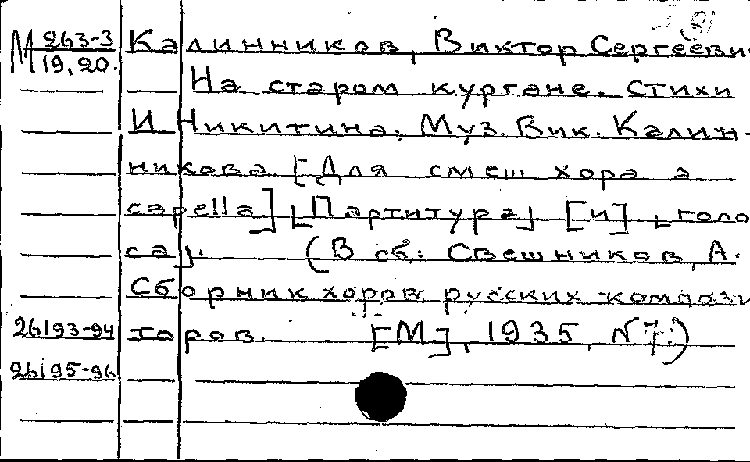 М 263-3
19,20.
Калинников, Виктор Сергееви
На старом кургане. Стихи
И Никитина. Муз. Вик. Калин-
никова [Для смеш хора а
capella] [Партитура] [и] [голо
са]. (В сб: Свешников, А.
Сборник хоров русских компози
торов. [М], 1935, N 7.)
26193-94
26195-96